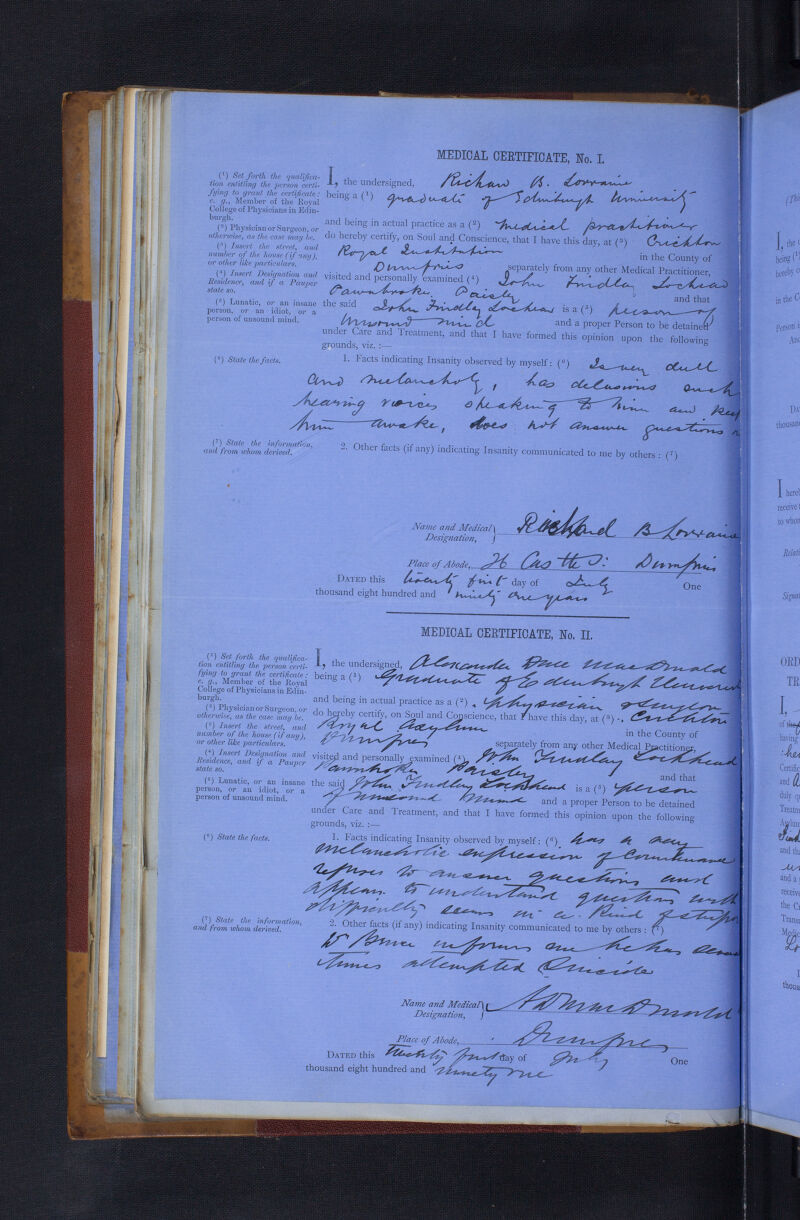 MEDICAL CERTIFICATE, No. I.
(¹) Set forth the qualifica-
tion entitling the person certi-
fying to grant the certificate:
e. g., Member of the Royal
College of Physicians in Edin-
burgh.
(²) Physician or Surgeon, or
otherwise, as the case may be.
(³) Insert the street, and
number of the house (if any),
or other like particulars.
(⁴) Insert Designation and
Residence, and if a Pauper
state so.
(⁵) Lunatic, or an insane
person, or an idiot, or a
person of unsound mind.
I, the undersigned, Richard B. Lorraine
being a (¹) graduate of Edinburgh University
and being in actual practice as a (²) medical practitioner
do hereby certify, on Soul and Conscience, that I have this day, at (³) Crichton
Royal Institution in the County of
Dumfries separately from any other Medical Practitioner,
visited and personally examined (⁴) John Findlay Lochead
Pawnbroker Paisley and that
the said John Findlay Lochead is a (⁵) person of
unsound mind and a proper Person to be detained
under Care and Treatment, and that I have formed this opinion upon the following
grounds, viz. :—
(⁶) State the facts.
1. Facts indicating Insanity observed by myself: (⁶) Is very dull
and melancholy, has delusions such
hearing voices speaking to him and keep
him awake, does not answer questions
(⁷) State the information,
and from whom derived.
2. Other facts (if any) indicating Insanity communicated to me by others : (⁷)
Name and Medical Designation, Richard B Lorraine
Place of Abode, 26 Castle St: Dumfries
DATED this twenty first day of July One
thousand eight hundred and ninety one years
MEDICAL CERTIFICATE, No. II.
(¹) Set forth the qualifica-
tion entitling the person certi-
fying to grant the certificate:
e. g., Member of the Royal
College of Physicians in Edin-
burgh.
(²) Physician or Surgeon, or
otherwise, as the case may be.
(³) Insert the street, and
number of the house (if any),
or other like particulars.
(⁴) Insert Designation and
Residence, and if a Pauper
state so.
(⁵) Lunatic, or an insane
person, or an idiot, or a
person of unsound mind.
I, the undersigned, Alexander MacDonald
being a (¹) Graduate of Edinburgh
and being in actual practice as a (²) physician & surgeon
do hereby certify, on Soul and Conscience, that I have this day, at (³) Crichton
Royal Asylum in the County of
Dumfries separately from any other Medical Practitioner,
visited and personally examined (⁴) John Findlay Lochhead
Pawnbroker Paisley and that
the said John Findlay Lochhead is a (⁵) person
of unsound mind and a proper Person to be detained
under Care and Treatment, and that I have formed this opinion upon the following
grounds, viz. :—
(⁶) State the facts.
1. Facts indicating Insanity observed by myself: (⁶) has a very
melancholic expression of Countenance
refuses to answer questions and
appears to understand questions with
difficulty seems in a kind of
(⁷) State the information,
and from whom derived.
2. Other facts (if any) indicating Insanity communicated to me by others : (⁷)
Dr informs me he has
times attempted Suicide
Name and Medical Designation, MacDonald
Place of Abode, Dumfries
DATED this twenty first day of July One
thousand eight hundred and ninety one